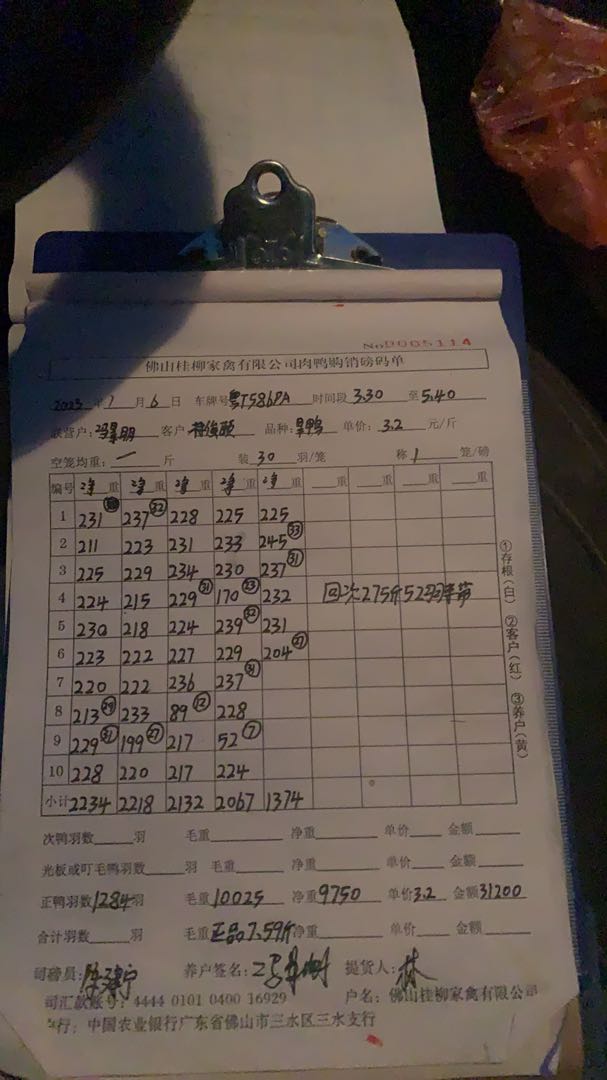 No 0005114
佛山桂柳家禽有限公司肉鸭购销磅码单
2023年7月6日 车牌号粤T586PA 时间段3.30至5.40
联营户: 客户 品种: 单价:3.2元/斤
空笼均重:一斤 装30羽/笼 称1笼/磅
编号 净重 净重 净重 净重 净重 重 重 重 重
1 231 237㉜ 228 225 225
2 211 223 231 233 245㉝
3 225 229 234 230 237㉛
4 224 215 229㉛ 170㉓ 232 回次275斤52羽
5 230 218 224 239㉜ 231
6 223 222 227 229 204㉗
7 220 222 236 237㉛
8 213㉙ 233 89⑫ 228
9 229㉛ 199㉗ 217 52⑦
10 228 220 217 224
小计 2234 2218 2132 2067 1374
①存根(白) ②客户(红) ③养户(黄)
次鸭羽数 羽 毛重 净重 单价 金额
光板或叮毛鸭羽数 羽 毛重 净重 单价 金额
正鸭羽数1284羽 毛重10025 净重9750 单价3.2 金额31200
合计羽数 羽 毛重正品7.59斤净重 单价 金额
司磅员: 养户签名: 提货人:林
司汇款账号:4444 0101 0400 16929 户名:佛山桂柳家禽有限公司
行:中国农业银行广东省佛山市三水区三水支行